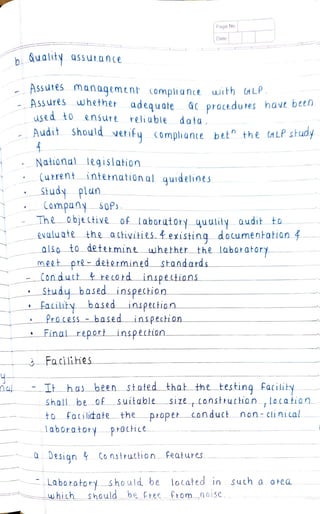 Page No.
Date
b. Quality assurance
- Assures management compliance with GLP.
- Assures whether adequate QC procedures have been
used to ensure reliable data.
- Audit should verify compliance betn the GLP study
&
• National legislation
• Current international guidelines
• Study plan
• Company SOPs.
- The objective of laboratory quality audit to
evaluate the activities & existing documentation &
also to determine whether the laboratory
meet pre-determined standards
- Conduct & record inspections
• Study based inspection
• Facility based inspection
• Process-based inspection
• Final report inspection
3. Facilities
- It has been stated that the testing facility
shall be of suitable size, construction, location
to facilitate the proper conduct non-clinical
laboratory practice
a. Design & Construction features
- Laboratory should be located in such a area
which should be free from noise.